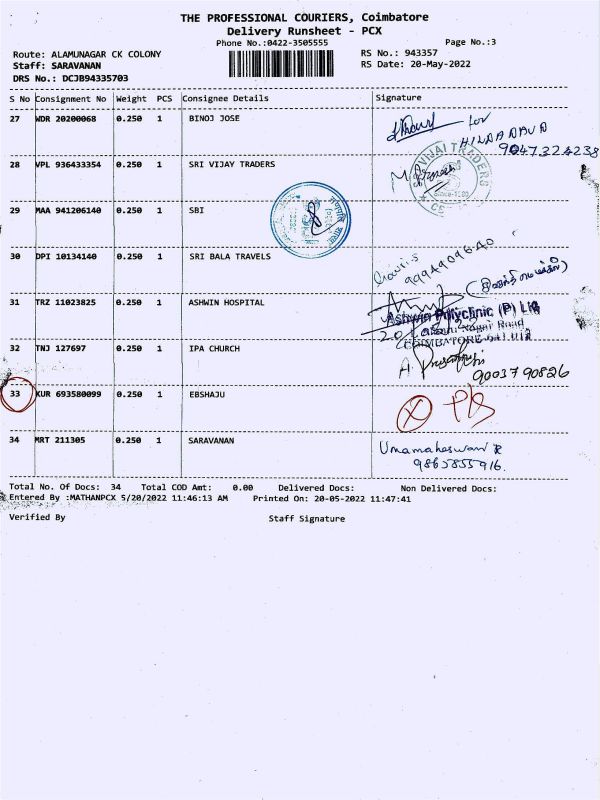 THE PROFESSIONAL COURIERS, Coimbatore
Delivery Runsheet - PCX
Phone No.:0422-3505555
Page No.:3
Route: ALAMUNAGAR CK COLONY
RS No.: 943357
Staff: SARAVANAN
RS Date: 20-May-2022
DRS No.: DCJB94335703
S No Consignment No Weight PCS Consignee Details Signature
27 WDR 20200068 0.250 1 BINOJ JOSE
for
HILDA DAVID
9047324238
28 VPL 936433354 0.250 1 SRI VIJAY TRADERS
NNAI TRADERS
29 MAA 941206140 0.250 1 SBI
30 DPI 10134140 0.250 1 SRI BALA TRAVELS
9994909640
31 TRZ 11023825 0.250 1 ASHWIN HOSPITAL
Ashwin Polyclinic (P) Ltd
Nagar Road
COIMBATORE-641 012
32 TNJ 127697 0.250 1 IPA CHURCH
9003790826
33 KUR 693580099 0.250 1 EBSHAJU
34 MRT 211305 0.250 1 SARAVANAN
Umamaheswari R
9865855916.
Total No. Of Docs: 34 Total COD Amt: 0.00 Delivered Docs: Non Delivered Docs:
Entered By :MATHANPCX 5/20/2022 11:46:13 AM Printed On: 20-05-2022 11:47:41
Verified By Staff Signature